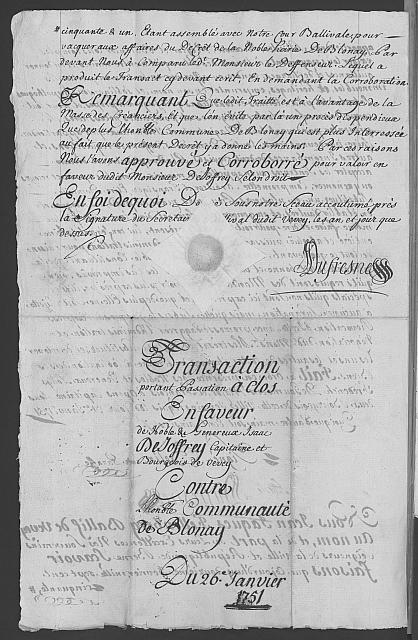 cinquante & un, Etant assemblé avec Notre Cour Ballivale, pour
vacquer aux affaires du Decret de la Noble Hoirie De Blonay, Par
devant Nous à Comparu led.t Monsieur le Deffenseur, Lequel a
produit le Transact cy devant écrit, En demandant la Corroboration
Remarquant Que ledit Traitté est à l'avantage de la
Masse des Créanciers, et que l'on évite par là un procès dispendieux
Que de plus l'honble Commune De Blonay qui est plus Interressée
au fait que le présent Decret y a donné les mains. Par ces raisons
Nous l'avons approuvé et Corroborré pour valoir en
faveur dudit Monsieur De Joffrey selon droit
En foi dequoi Sous notre Sceau accoutumé, près
la Signature du Secretaire dudit Vevey, les an, et jour que
dessus.
Dufresne
Transaction
portant Passation à clos
En faveur
de Noble & Genereux Isaac
De Joffrey Capitaine et
Bourgeois de Vevey
Contre
l'honble Communauté
de Blonay
Du 26. Janvier
1751